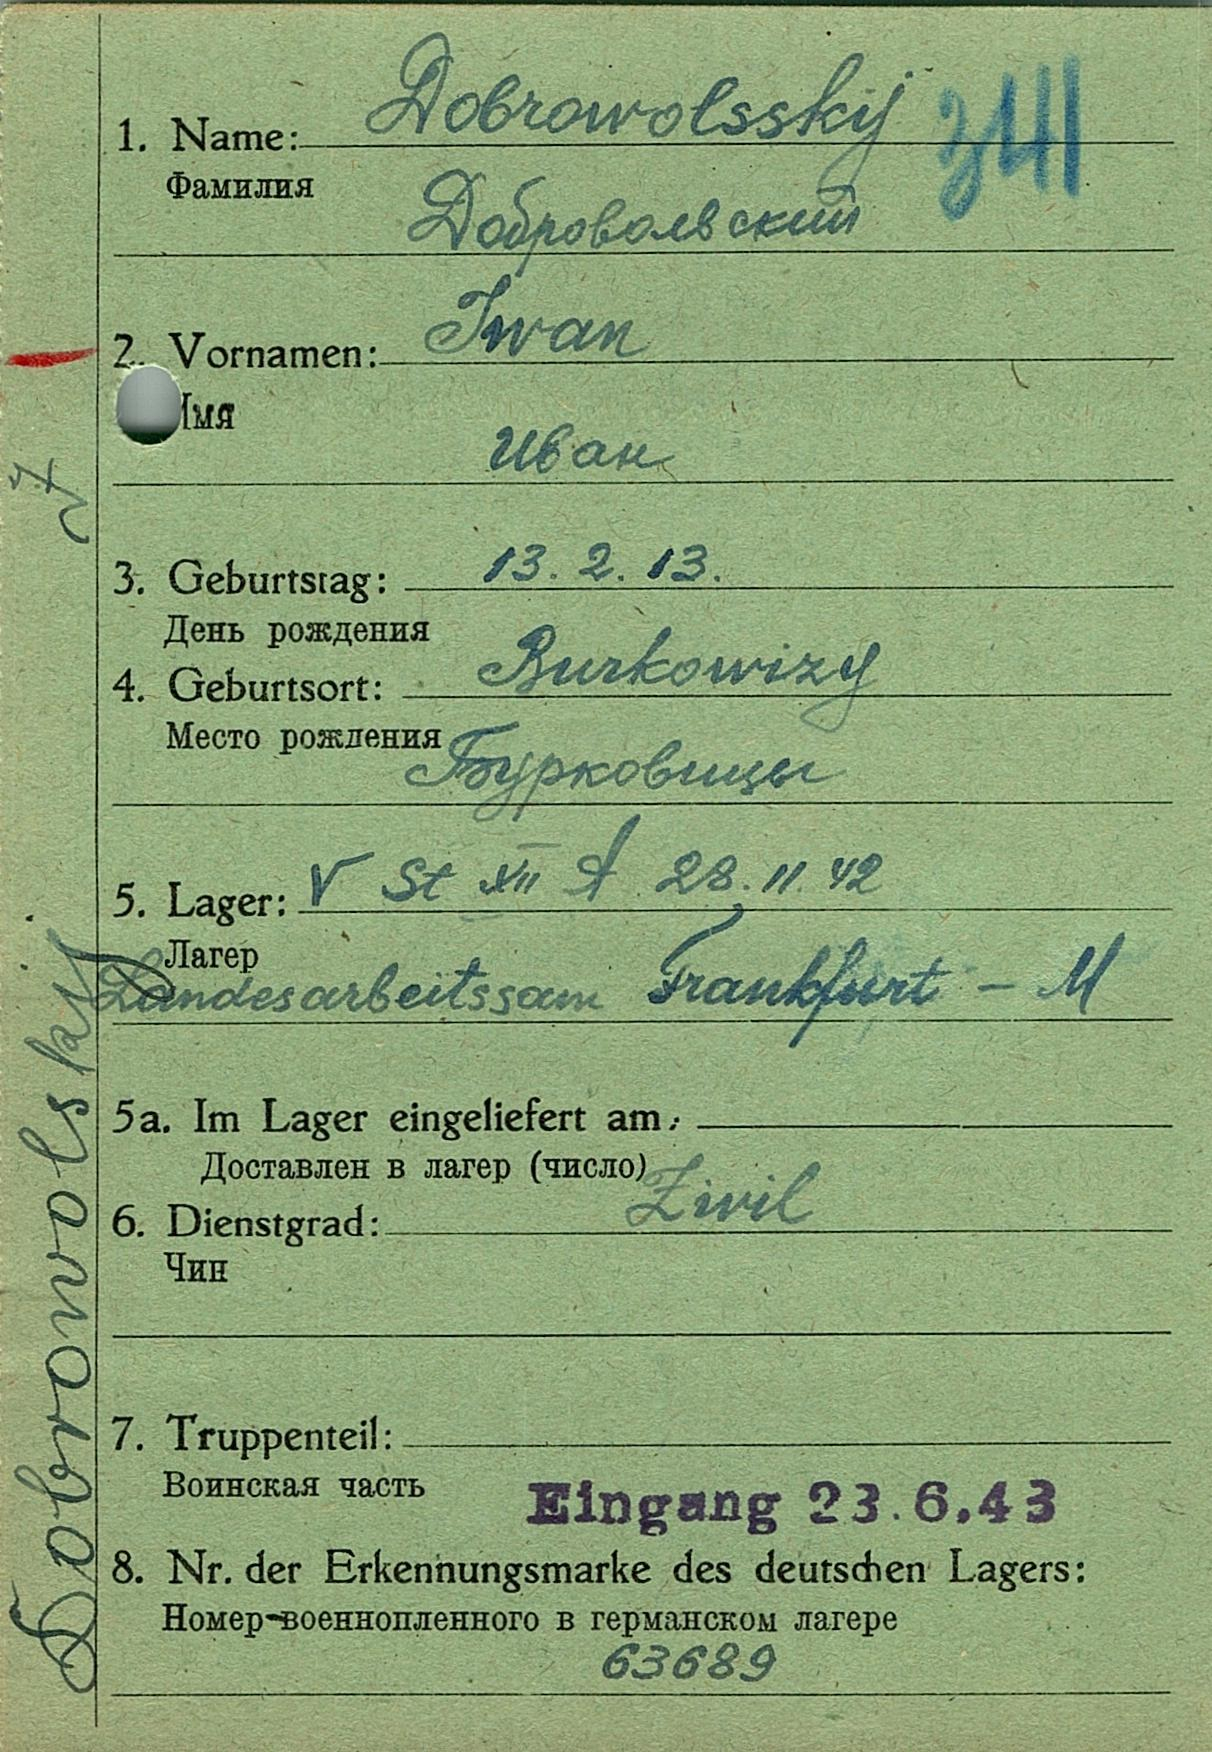 Dobrowolsskij
1. Name:
Фамилия
Добровольский
Iwan
2. Vornamen:
Имя
Иван
3. Geburtstag: 13. 2. 13.
День рождения
4. Geburtsort: Burkowizy
Место рождения
Бурковицы
5. Lager: V St XII A 28. 11. 42
Лагер
Landesarbeitssam Frankfurt - M
5a. Im Lager eingeliefert am:
Доставлен в лагер (число)
6. Dienstgrad: Zivil
Чин
7. Truppenteil:
Воинская часть
Eingang 23.6.43
8. Nr. der Erkennungsmarke des deutschen Lagers:
Номер военнопленного в германском лагере
63689
Dobrowolskij